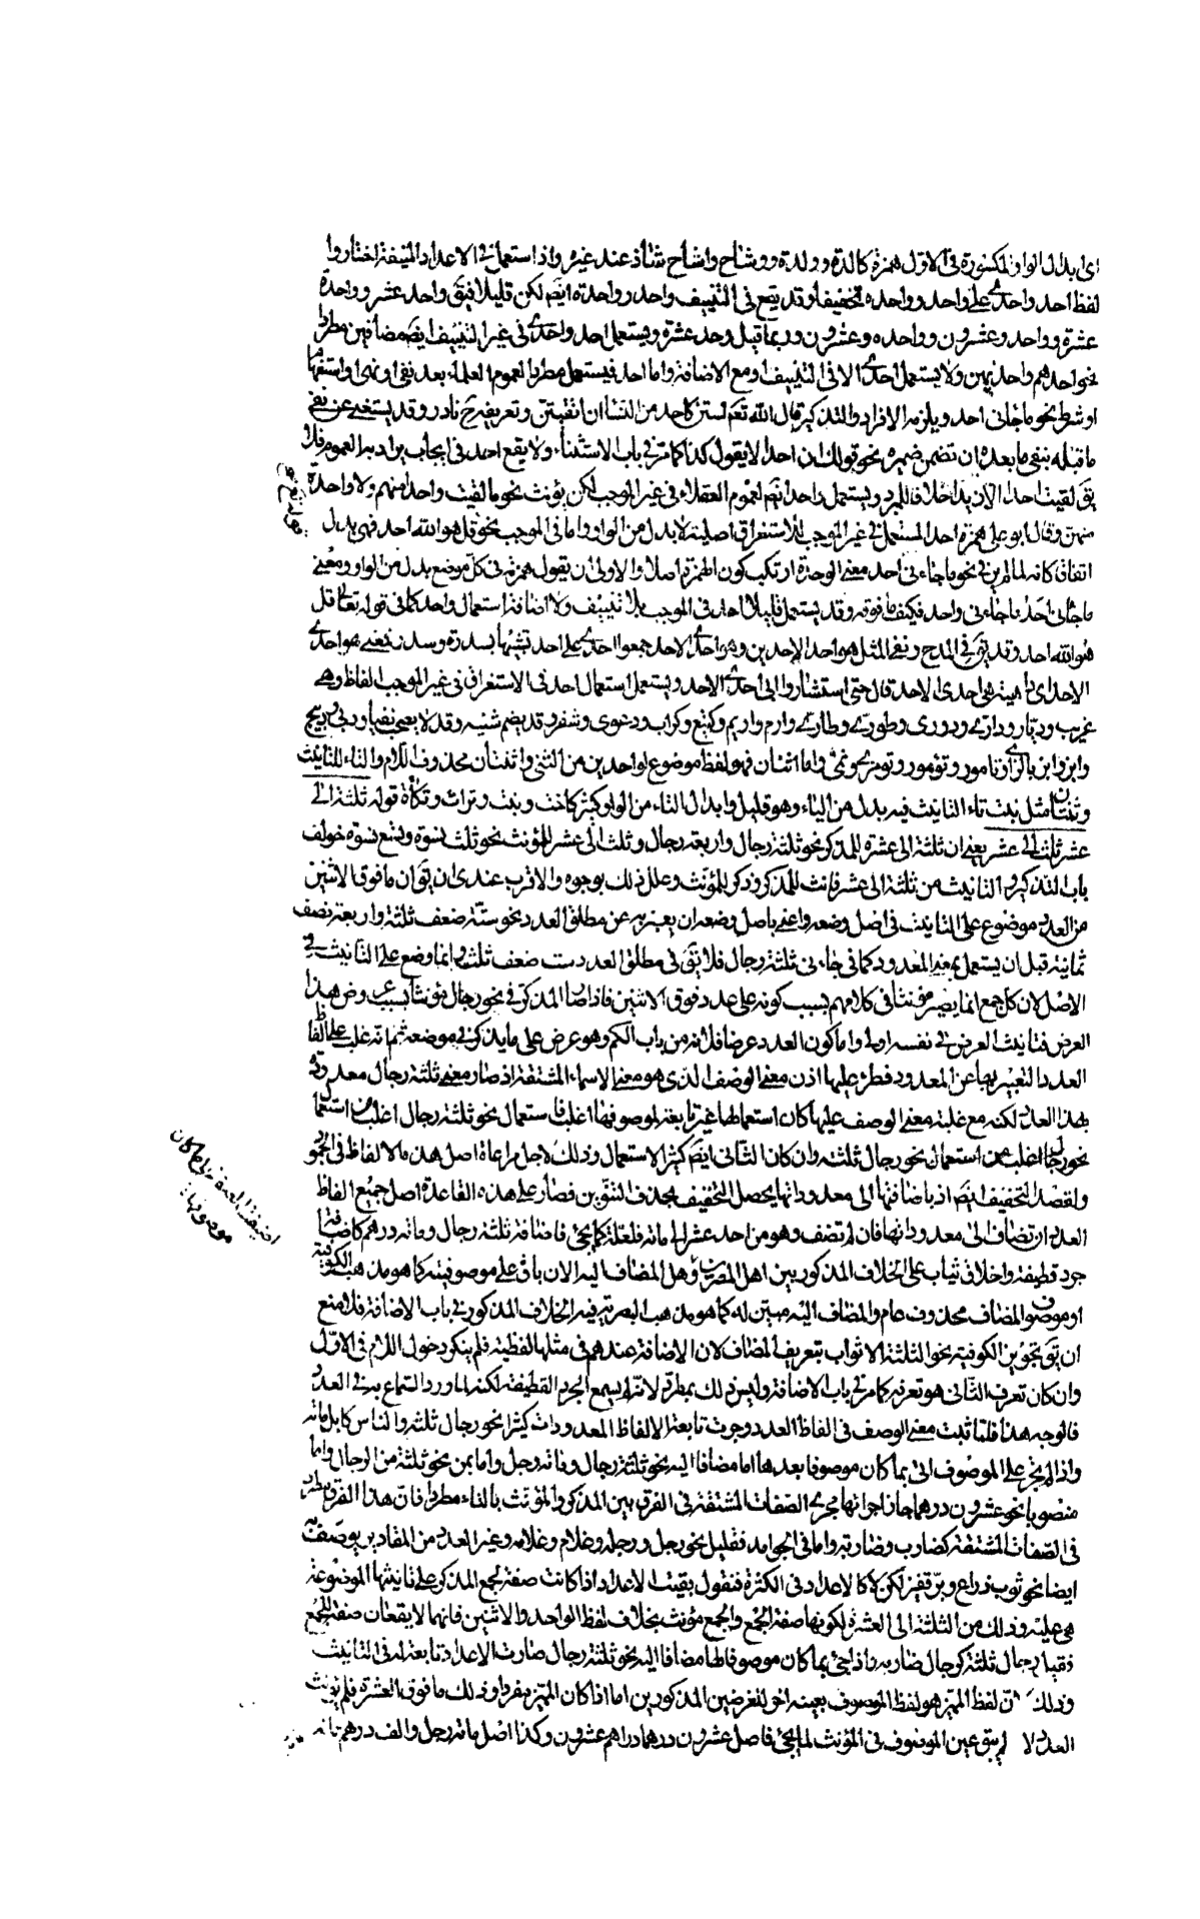 اى ابدال الواو المكسورة فى الاول همزة كالدة وولدة ووشاح واشاح شاذ عند غيره واذا استعمل فى الاعداد المنيفة اختاروا
لفظ احد واحدى على واحد وواحدة تخفيفا وقد يقع فى التنييف واحد وواحدة ايضم لكن قليلا فيق واحد عشر وواحدة
عشرة وواحد وعشرون وواحدة وعشرون وربما قيل وحد عشرة ويستعمل احد واحدى فى غير التنييف ايضم مضافين مطردا
نحو احدهم واحديهن ولا يستعمل احدى الا فى التنييف او مع الاضافة واما احد فيستعمل مطردا لعموم العلماء بعد نفى او نهى او استفهام
او شرط نحو ما جاءنى احد ويلزمه الافراد والتذكير قال الله تعم لستن كاحد من النساء ان اتقيتن وتعريفه ح نادر وقد يستغنى عن نفى
ما قبله بنفى ما بعده ان تضمن ضميره نحو قولك ان احدا لا يقول كذا كما مر فى باب الاستثناء ولا يقع احد فى ايجاب يراد به العموم فلا
يق لقيت احدا الا زيدا خلافا للمبرد ويستعمل واحد ايضم لعموم العقلاء فى غير الموجب لكن يؤنث نحو ما لقيت واحدا منهم ولا واحدة
منهن وقال ابو على همزة احد المستعمل فى غير الموجب للاستغراق اصلية لا بدل من الواو واما فى الموجب نحو قل هو الله احد فهى بدل
اتفاقا كانه لما لم ير فى نحو ما جاءنى احد معنى الوحدة ارتكب كون الهمزة اصلا والاولى ان يقول همزته فى كل موضع بدل من الواو ومعنى
ما جاءنى احد ما جاءنى واحد فكيف ما فوقه وقد يستعمل قليلا احد فى الموجب بلا تنييف ولا اضافة استعمال واحد كما فى قوله تعالى قل
هو الله احد وقد يق فى المدح ونفى المثل هو احد الاحدين وهو احدى الاحد جمعوا احدى على احد تشبيها بسدرة وسدر فمعنى هو احدى
الاحد داهية هى احدى الاحد قال حتى استشاروا الى احدى الاحد ويستعمل استعمال احد فى الاستغراق فى غير الموجب الفاظ وهى
عريب وديار ودارى ودورى وطورى وطارى وارم واريم وكتيع وكراب ودعوى وشفر وقد يضم شينه وقد لا يصحب نفيا ودبى ودبيج
وابز وابر بالزاى وتامور وتؤمور وتومرى ونمى واما اثنان فهو لفظ موضوع لواحدين من الثنى واثنتان محذوف اللام والتاء للتانيث
وثنتان مثل بنت تاء التانيث فيه بدل من الياء وهو قليل وابدال التاء من الواو كثير كاخت وبنت وتراث وتكأة قوله ثلثة الى
عشر ثلث الى عشر يعنى ان ثلثة الى عشرة للمذكر نحو ثلثة رجال واربعة رجال وثلث الى عشر للمؤنث نحو ثلث نسوة وتسع نسوة خولف
باب التذكير والتانيث من ثلثة الى عشرة فانث للمذكر وذكر للمؤنث وعلل ذلك بوجوه والاقرب عندى ان يق ان ما فوق الاثنين
من العدد موضوع على التانيث فى اصل وضعه واعنى باصل وضعه ان يعبر به عن مطلق العدد نحو ستة ضعف ثلثة واربعة نصف
ثمانية قبل ان يستعمل بمعنى المعدود كما فى جاءنى ثلثة رجال فلا يق فى مطلق العدد ست ضعف ثلث وانما وضع على التانيث فى
الاصل لان كل جمع انما يصير مؤنثا فى كلامهم بسبب كونه على عدد فوق الاثنين فاذا صار المذكر فى نحو رجال مؤنثا بسبب عروض هذا
العرض فتانيث العرض فى نفسه اولى واما كون العدد عرضا فلانه من باب الكم وهو عرض على ما يذكر فى موضعه ثم انه غلب على الفاظ
العدد التعبير بها عن المعدود فطرء عليها اذن معنى الوصف الذى هو معنى الاسماء المشتقة اذ صار معنى ثلثة رجال معدودة
بهذا العدد لكنه مع غلبة معنى الوصف عليها كان استعمالها غير تابعة لموصوفها اغلب فاستعمال نحو ثلثة رجال اغلب من استعمال
نحو رجال ثلثة وان كان الثانى ايضم كثير الاستعمال وذلك لاجل مراعاة اصل هذه الالفاظ فى الجمود
ولقصد التخفيف ايضم اذ باضافتها الى معدوداتها يحصل التخفيف بحذف التنوين فصار على هذه القاعدة اصل جميع الفاظ
العدد ان تضاف الى معدوداتها فان لم تضف وهو من احد عشر الى مائة فلعلة كما يجئ فاضافة ثلثة رجال ومائة درهم كاضافة
جرد قطيفة واخلاق ثياب على الخلاف المذكور بين اهل المصرين وهل المضاف اليه الان باق على موصوفيته كما هو مذهب الكوفية
او موصوف المضاف محذوف عام والمضاف اليه مبين له كما هو مذهب البصرية فيه الخلاف المذكور فى باب الاضافة فلا منع
ان يق تجويز الكوفية نحو الثلثة الاثواب بتعريف المضاف لان الاضافة عندهم فى مثلها لفظية فلم ينكر دخول اللام فى الاول
وان كان تعرف الثانى هو تعرفه كما مر فى باب الاضافة وليس ذلك بمطرد لانه لم يسمع الجرد القطيفة لكنه لما ورد السماع به فى العدد
فالوجه هذا فلما ثبت معنى الوصف فى الفاظ العدد وجرت تابعة لالفاظ المعدودات كثيرا نحو رجال ثلثة والناس كابل مائة
واذا لم يجر على الموصوف اتى بما كان موصوفا بعدها اما مضافا اليه نحو ثلثة رجال ومائة رجل واما بمن نحو ثلثة من الرجال واما
منصوبا نحو عشرون درهما جاز اجراؤها مجرى الصفات المشتقة فى الفرق بين المذكر والمؤنث بالتاء مطردا فان هذا الفرق مطرد
فى الصفات المشتقة كضارب وضاربة واما فى الجوامد فقليل نحو رجل ورجلة وغلام وغلامة وغير العدد من المقادير يوصف به
ايضا نحو ثوب ذراع وبر قفيز لكن لا كالاعداد فى الكثرة فنقول بقيت الاعداد اذا كانت صفة لجمع المذكر على تانيثها الموضوعة
هى عليه وذلك من الثلثة الى العشرة لكونها صفة الجمع والجمع مؤنث بخلاف لفظ الواحد والاثنين فانهما لا يقعان صفة للجمع
فقيل رجال ثلثة كرجال ضاربة واذا جئ بما كان موصوفا لها مضافا اليه نحو ثلثة رجال صارت الاعداد تابعة له فى التانيث
وذلك لان لفظ المميز هو لفظ الموصوف بعينه اخر لغرضين المذكورين اما اذا كان المميز مفردا وذلك ما فوق العشرة فلم يؤنث
العدد لانه لم يبق عين الموصوف فى المؤنث لما يجئ فاصل عشرون درهما دراهم عشرون وكذا اصل مائة رجل والف درهم